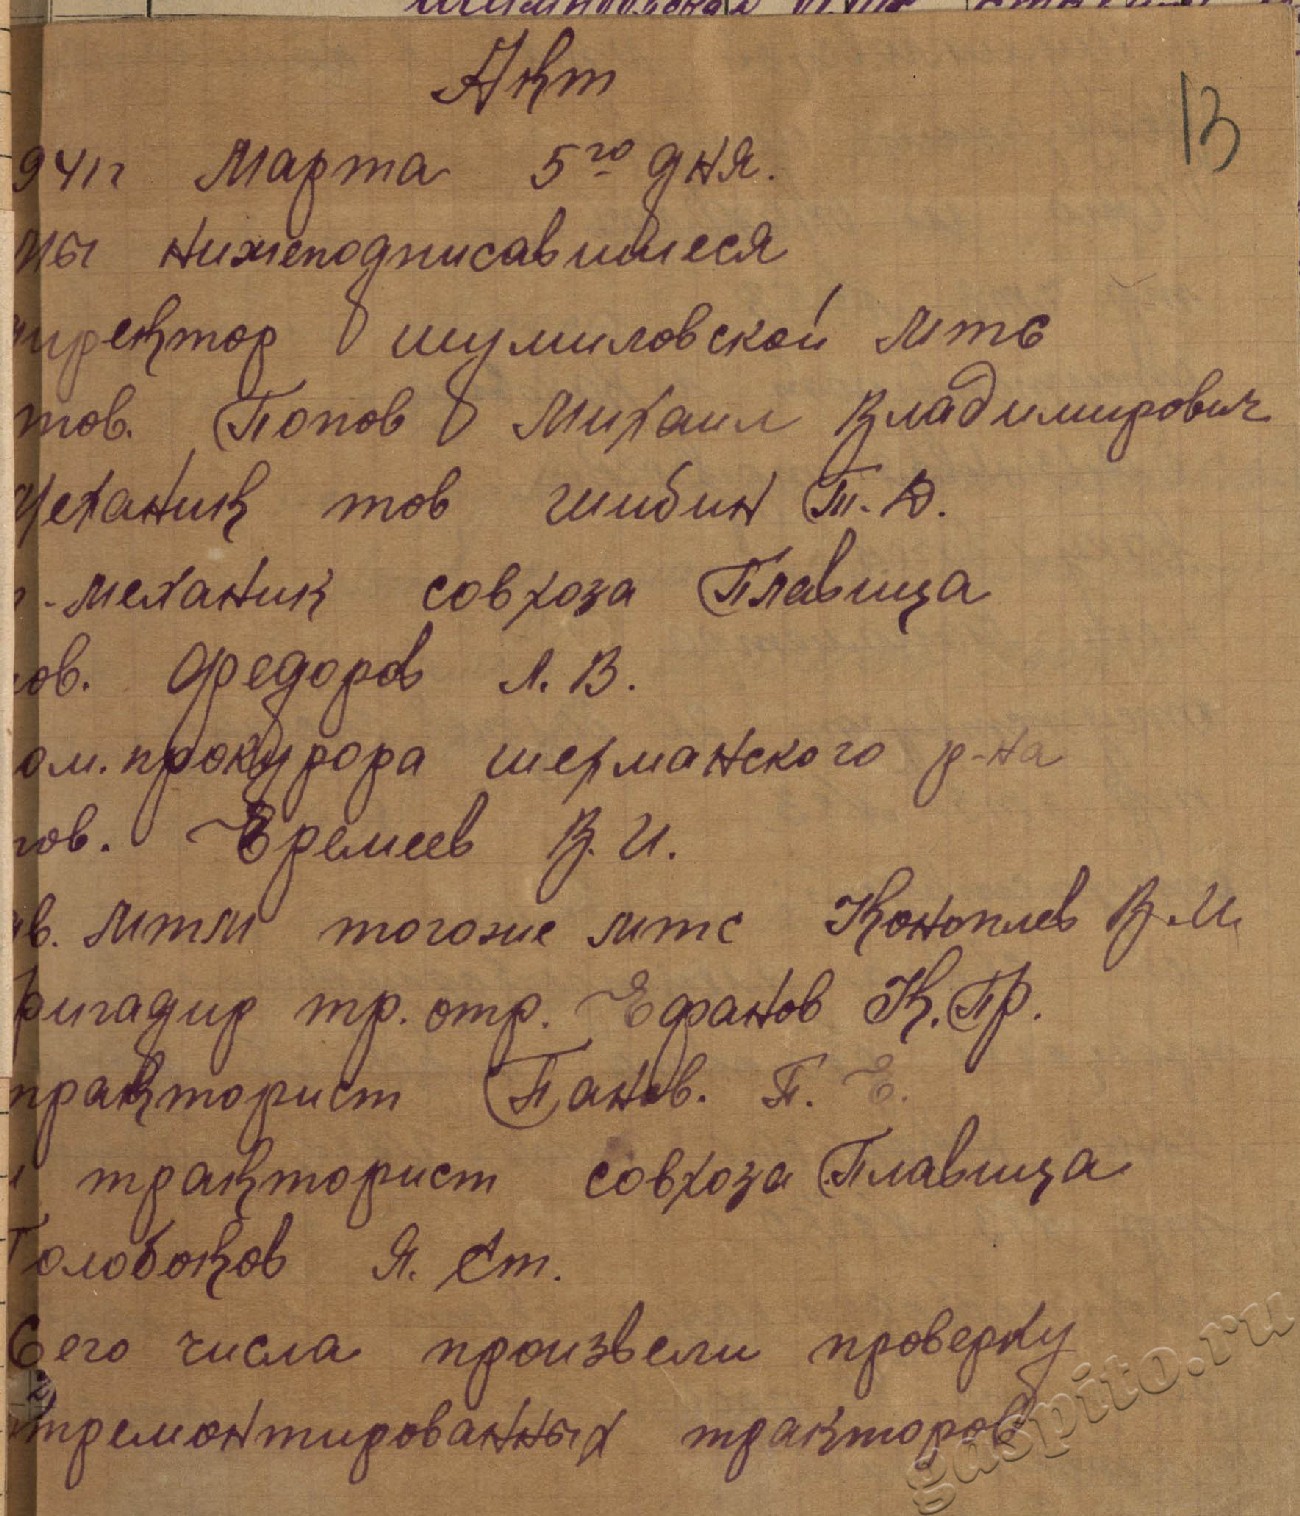 Акт
13
941г Марта 5го дня.
мы нижеподписавшиеся
директор шумиловской мтс
тов. Попов Михаил Владимирович
Механик тов шибин Т. Д.
-механик совхоза Плавица
ов. Федоров А. В.
ом. прокурора шехманского р-на
ов. Еремеев В. И.
ав. МТМ тогоже мтс Коноплев В. М.
Бригадир тр. отр. Ефанов К. Пр.
тракторист Панов. П. Е.
и тракторист совхоза Плавица
Голобоков Я. Ст.
Сего числа произвели проверку
отремонтированных тракторов
gaspito.ru